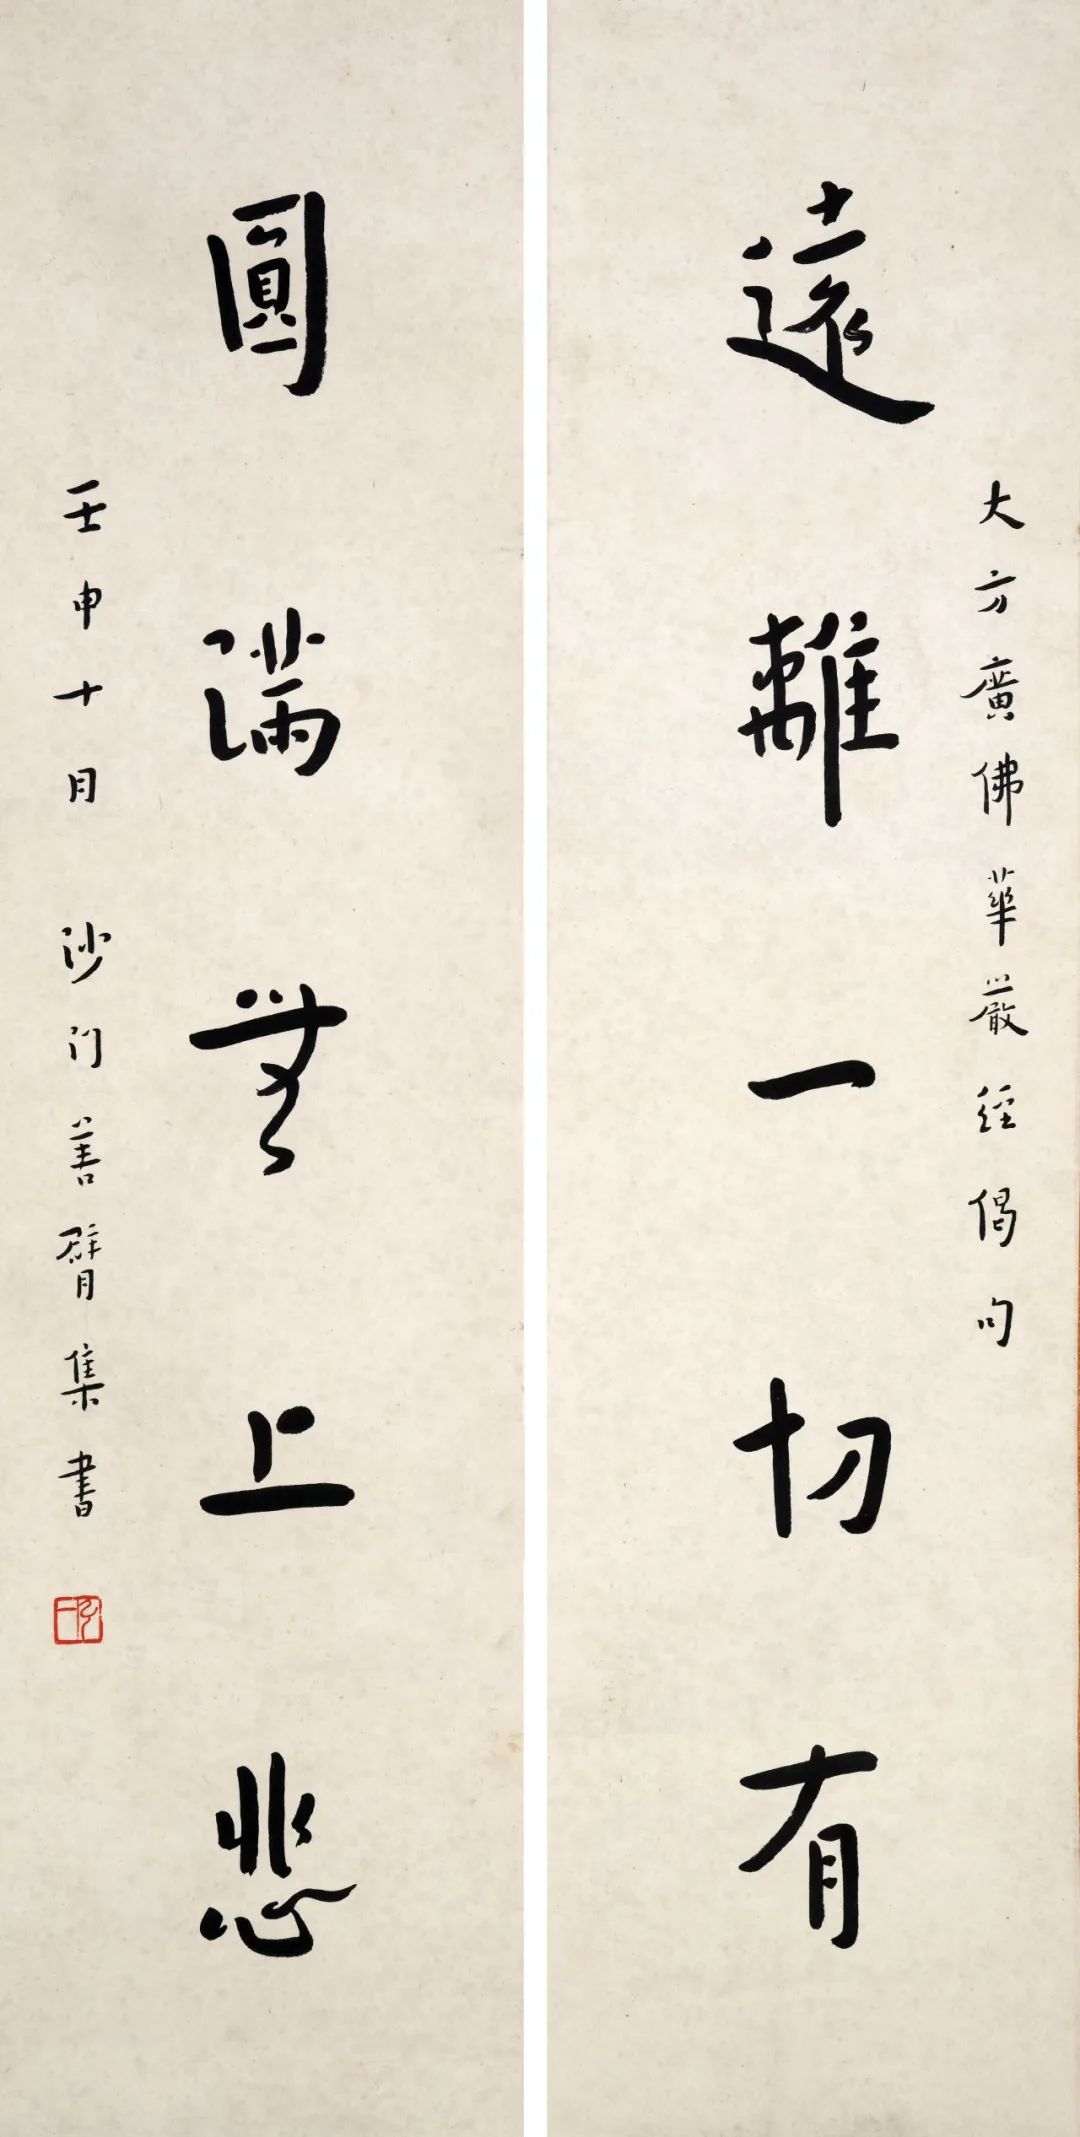 大方廣佛華嚴經偈句
遠離一切有
圓滿無上悲
壬申十月 沙門善臂集書